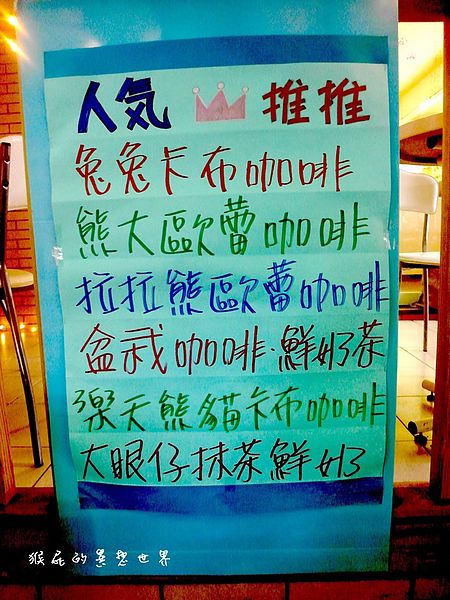 人気 推推
兔兔卡布咖啡
熊大歐蕾咖啡
拉拉熊歐蕾咖啡
盆栽咖啡·鮮奶茶
樂天熊貓卡布咖啡
大眼仔抹茶鮮奶
猴屁的異想世界